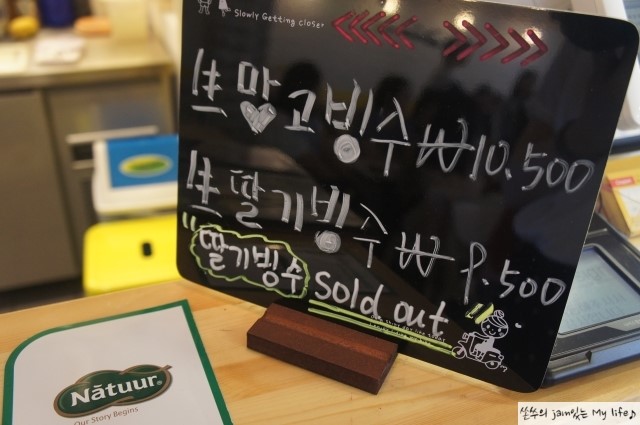 Slowly Getting closer
生망고빙수 ₩10.500
生딸기빙수 ₩9.500
"딸기빙수 sold out
Nātuur®
Our Story Begins
쏠쑤의 jain있는 My life♪